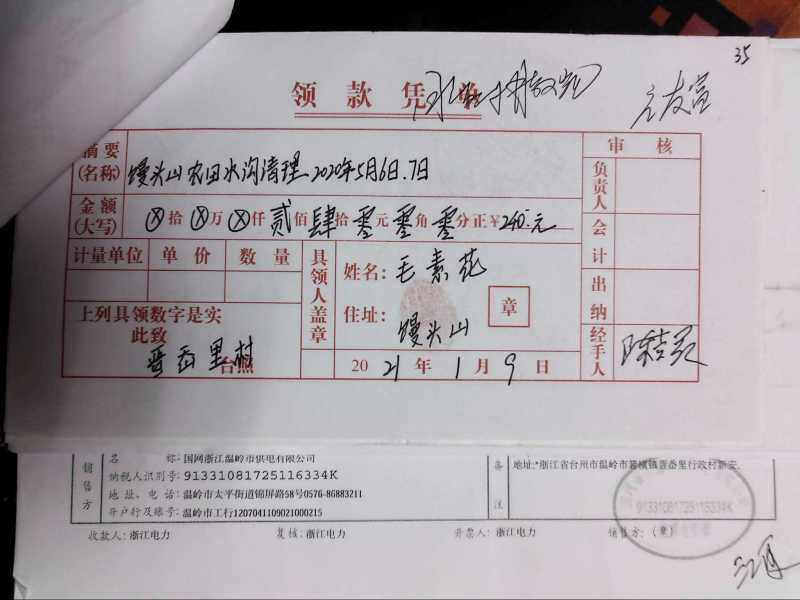 35
领款凭单
摘要(名称) 馒头山农田水沟清理 2020年5月6日.7日
审核
金额(大写) ⊗拾⊗万⊗仟贰佰肆拾零元零角零分正¥240.元
负责人
会计
出纳
经手人
计量单位 单价 数量
具领人盖章
姓名:毛素花
住址:馒头山
章
上列具领数字是实
此致
里村 台照
2021年1月9日
销售方
名称:国网浙江温岭市供电有限公司
纳税人识别号:91331081725116334K
地址、电话:温岭市太平街道锦屏路58号0576-86883211
开户行及账号:温岭市工行1207041109021000215
备注
地址:*浙江省台州市温岭市箬横镇晋岙里行政村新安.
91331081725116334K
收款人:浙江电力 复核:浙江电力 开票人:浙江电力 销售方:(章)